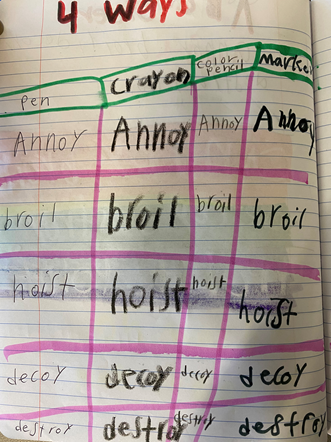 4 Ways
pen crayon color pencil Marker
Annoy Annoy Annoy Annoy
broil broil broil broil
hoist hoist hoist hoist
decoy decoy decoy decoy
destroy destroy destroy destroy